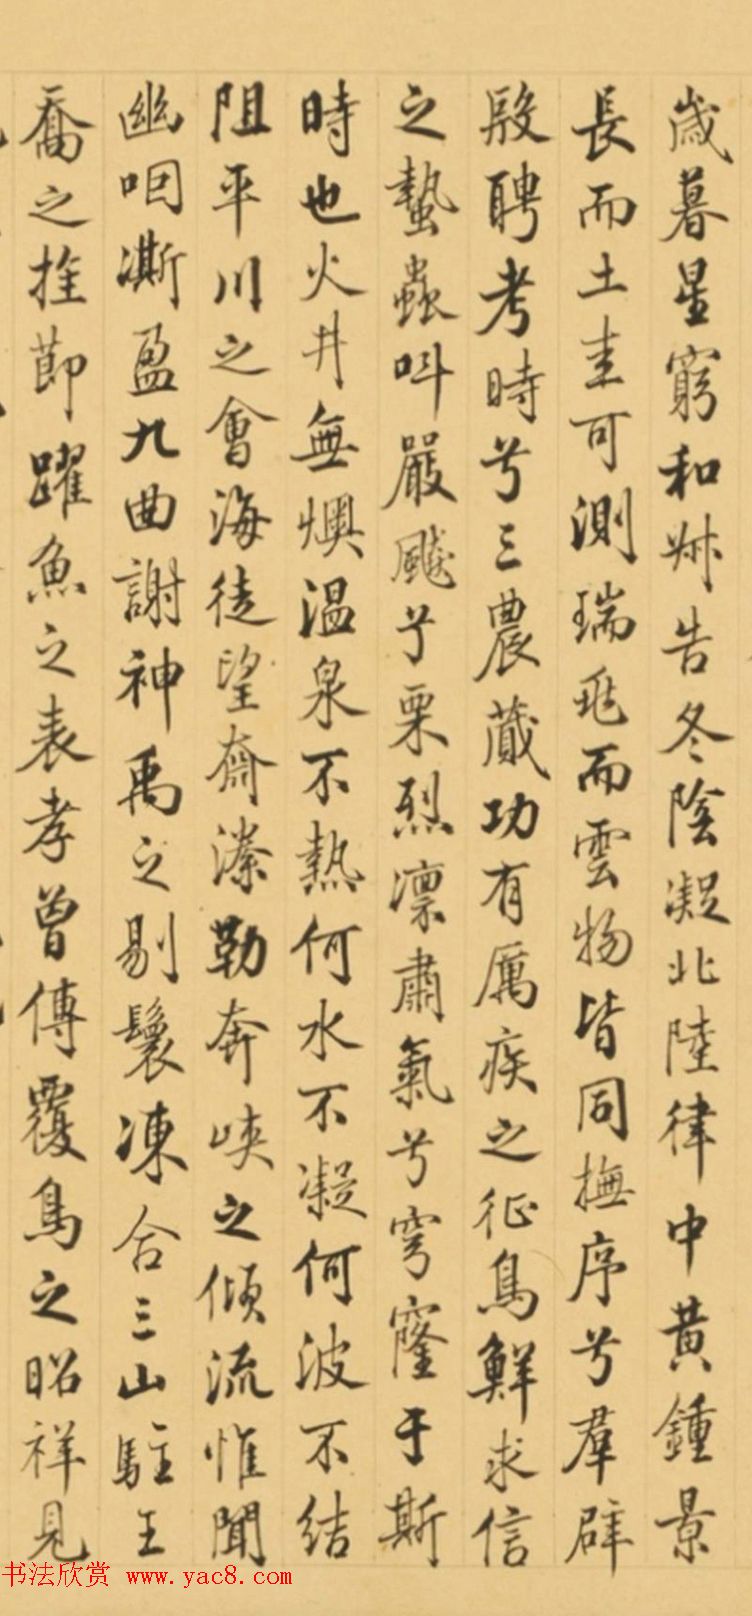 歲暮星窮和叔告冬陰凝北陸律中黃鍾景
長而土圭可測瑞飛而雲物皆同撫序兮羣辟
殷聘考時兮三農蔵功有厲疾之征鳥鮮求信
之蟄蟲叫嚴飈兮栗烈凛肅氣兮穹窿于斯
時也火井無燠温泉不熱何水不凝何波不結
阻平川之會海徒望齋溙勒奔峽之傾流惟聞
幽咽澌盈九曲謝神禹之剔鬟凍合三山駐王
喬之拴節躍魚之表孝曾傳覆鳥之昭祥見
书法欣赏 www.yac8.com